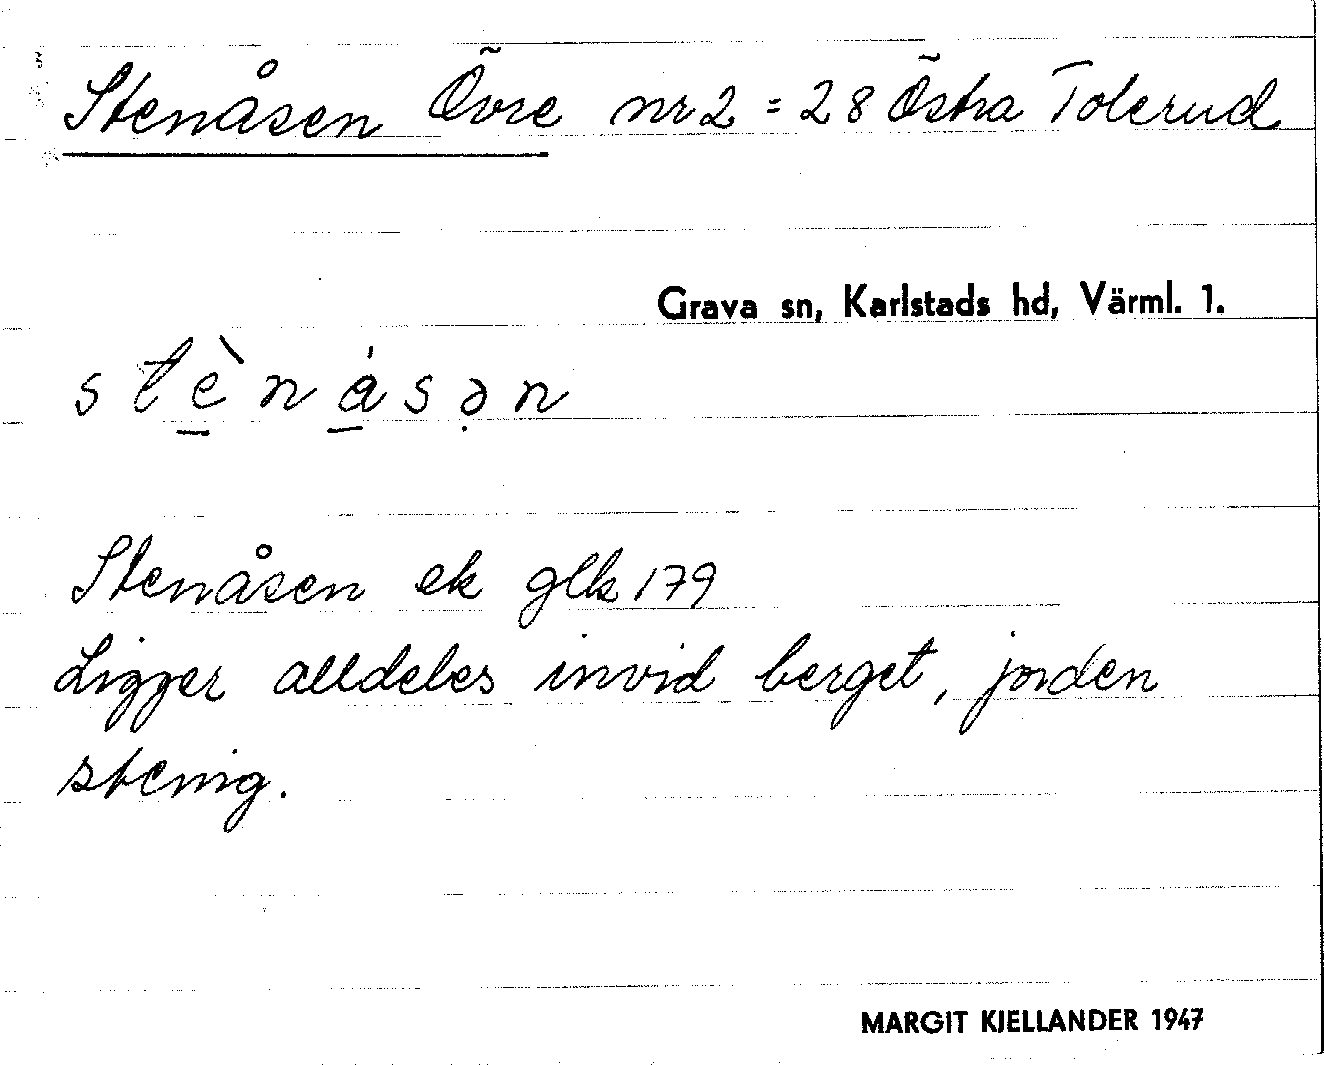 Stenåsen Övre nr 2 = 28 Östra Tolerud
Grava sn, Karlstads hd, Värml. 1.
stè̱ná̱sən
Stenåsen ek glk 179
Ligger alldeles invid berget, jorden
stenig.
MARGIT KJELLANDER 1947